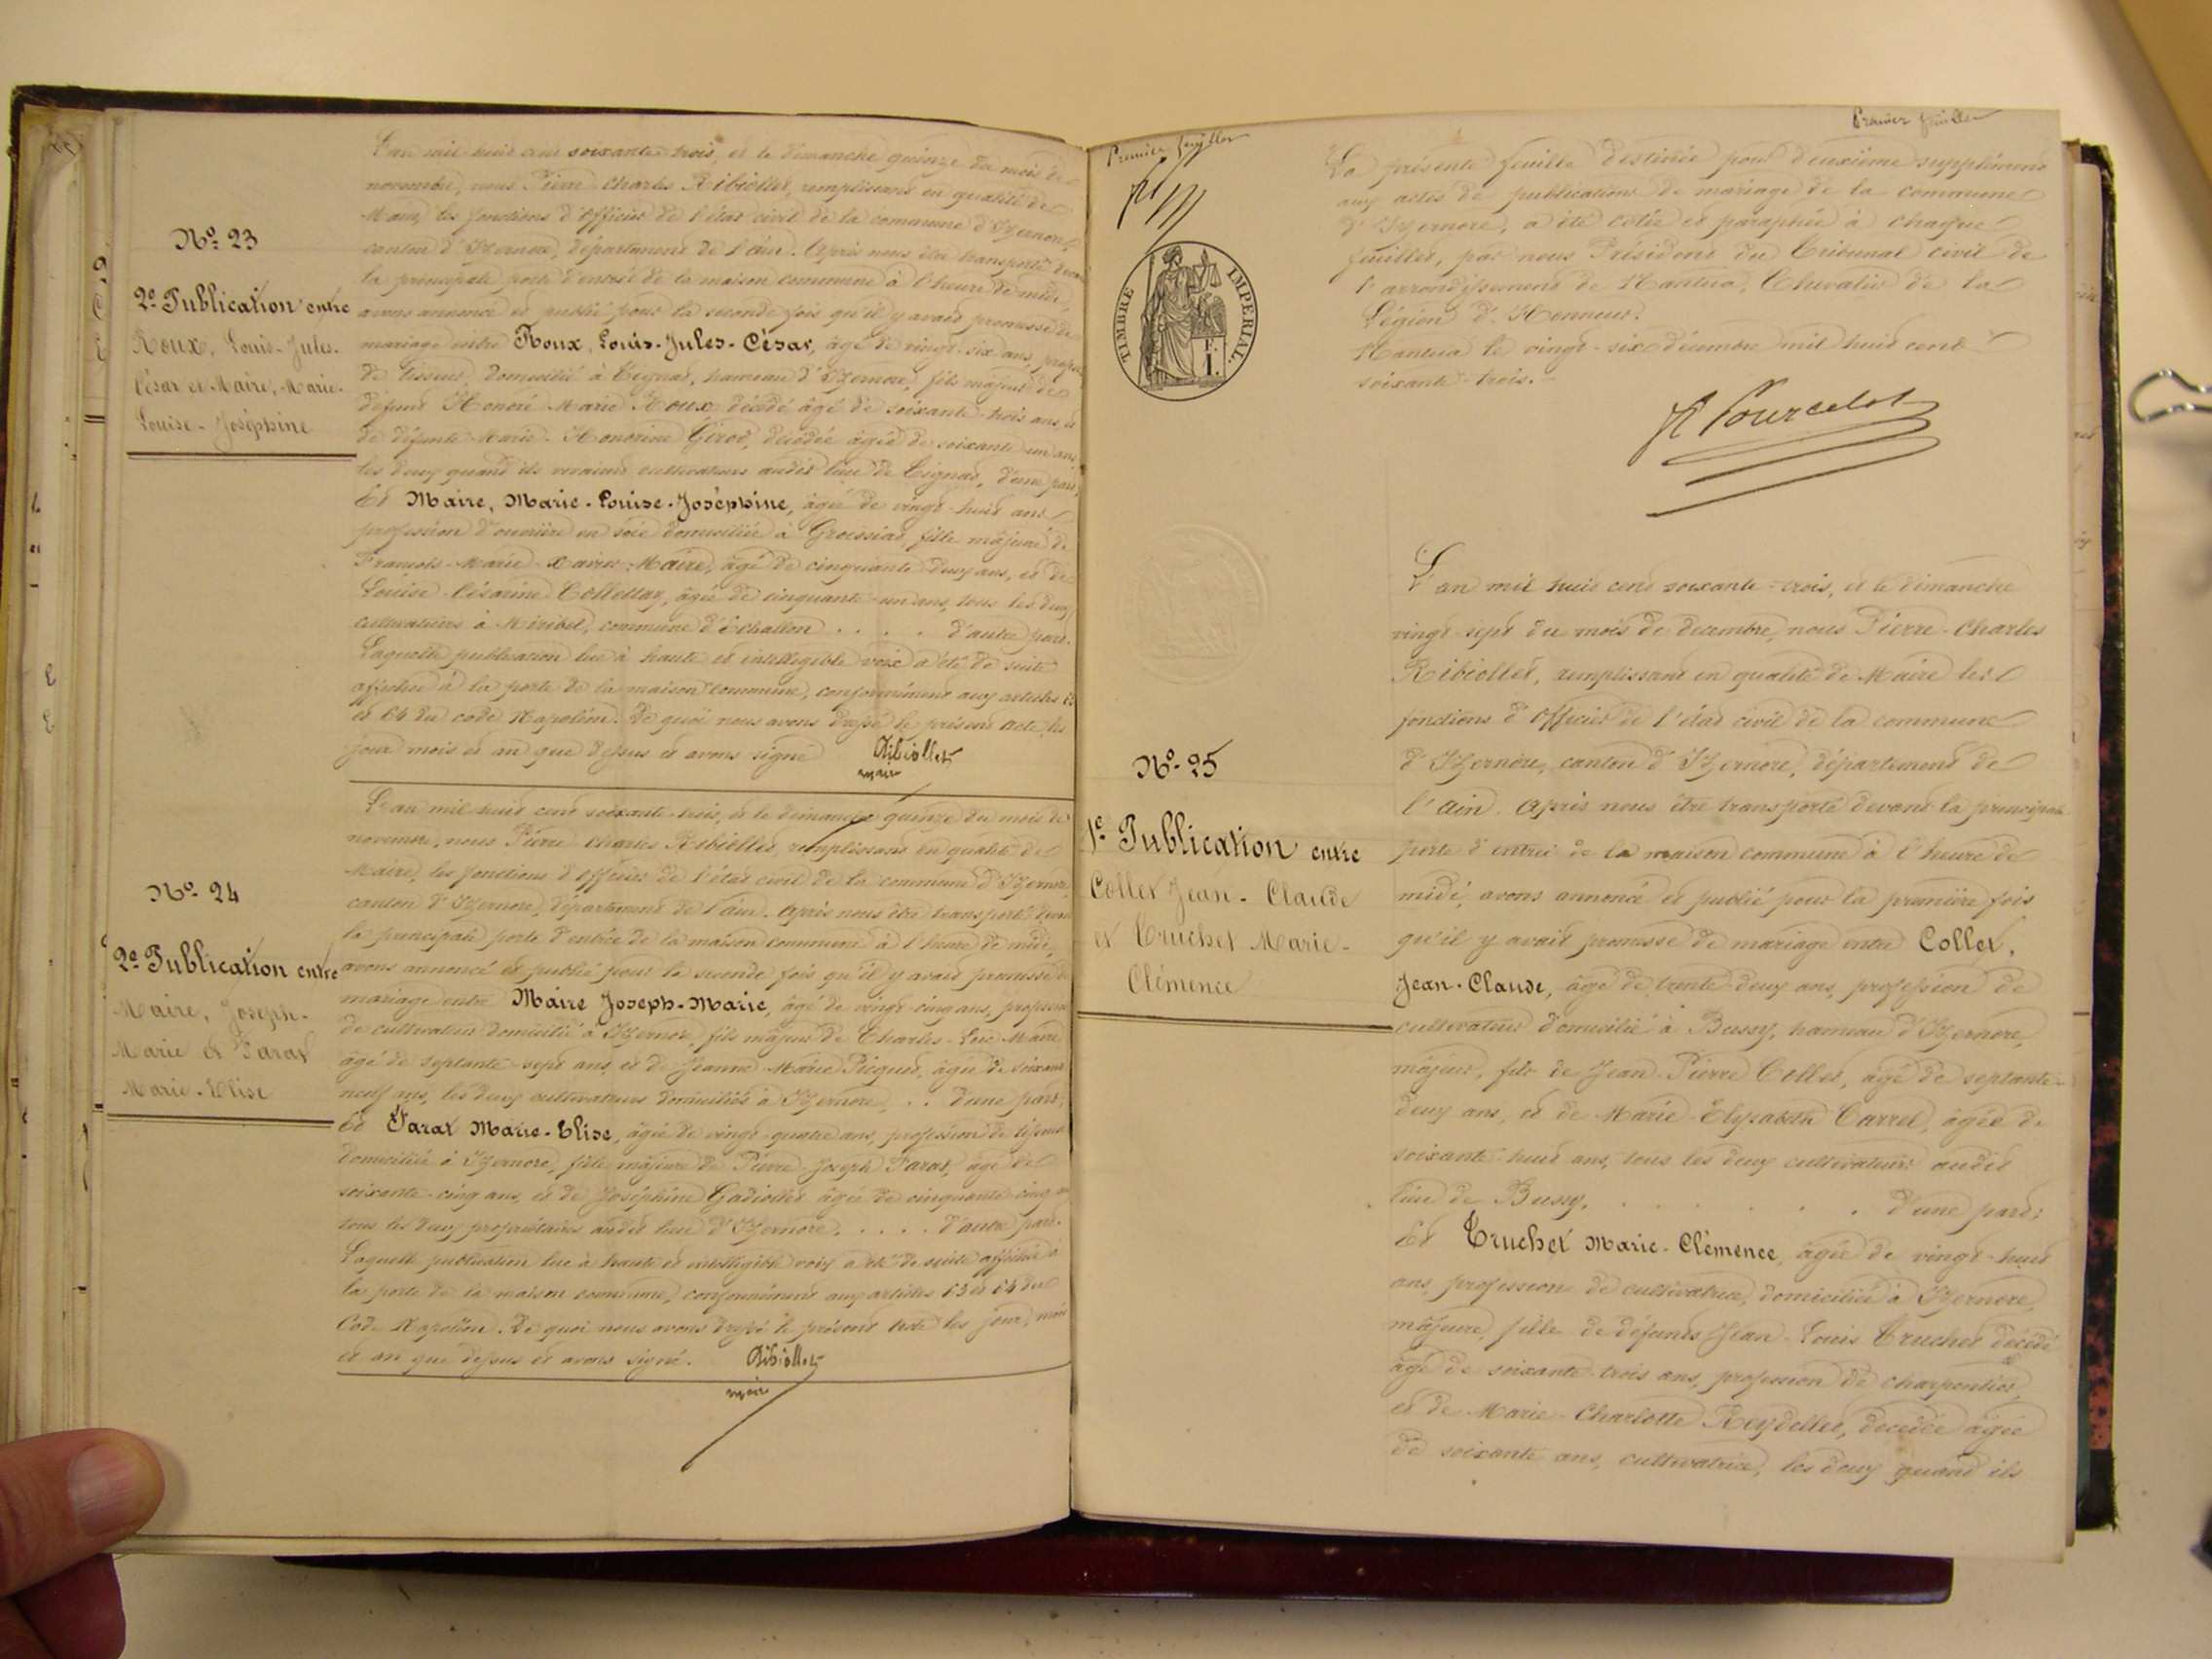 L'an mil huit cent soixante-trois, et le dimanche quinze du mois de
novembre, nous Pierre Charles Ribiollet, remplissant en qualité de
Maire, les fonctions d'Officier de l'état civil de la commune d'Izernore,
canton d'Izernore, département de l'Ain. Après nous être transporté devant
la principale porte d'entrée de la maison commune à l'heure de midi,
avons annoncé et publié pour la seconde fois qu'il y avait promesse de
mariage entre Roux, Louis-Jules-César, âgé de vingt-six ans,
de Tisseur, domicilié à Tignat, hameau d'Izernore, fils majeur de
défunt Honoré Marie Roux décédé âgé de soixante-trois ans, et
de défunte Marie-Honorine Girod, décédée âgée de soixante un ans
les deux quand ils vivaient cultivateurs audit lieu de Tignat, d'une part,
Et Maire, Marie-Louise-Joséphine, âgée de vingt-huit ans
profession d'ouvrière en soie domiciliée à Groissiat, fille majeure de
François-Marie-Xavier Maire, âgé de cinquante deux ans, et de
Louise Césarine Collettaz, âgée de cinquante-un ans, tous les deux
cultivateurs à Miribel, commune d'Echallon . . . . d'autre part.
Laquelle publication lue à haute et intelligible voix a été de suite
affichée à la porte de la maison commune, conformément aux articles 63
et 64 du code Napoléon. De quoi nous avons dressé le présent acte, les
jour mois et an que dessus et avons signé Ribiollet
maire
No. 23
2e Publication entre
Roux, Louis-Jules-
César et Maire, Marie-
Louise-Joséphine
L'an mil huit cent soixante-trois, et le dimanche quinze du mois de
novembre, nous Pierre Charles Ribiollet, remplissant en qualité de
Maire, les fonctions d'officier de l'état civil de la commune d'Izernore,
canton d'Izernore, département de l'Ain. Après nous être transporté devant
la principale porte d'entrée de la maison commune à l'heure de midi,
avons annoncé et publié pour la seconde fois qu'il y avait promesse de
mariage entre Maire Joseph-Marie, âgé de vingt-cinq ans, profession
de cultivateur domicilié à Izernore, fils majeur de Charles-Luc Maire
âgé de septante-sept ans, et de Jeanne-Marie Picquet, âgée de soixante
neuf ans, les deux cultivateurs domiciliés à Izernore, . . d'une part;
Et Farat Marie-Elise, âgée de vingt-quatre ans, profession de
domiciliée à Izernore, fille majeure de Pierre-Joseph Farat, âgé de
soixante-cinq ans, et de Joséphine Gadiollet âgée de cinquante-cinq ans
tous les deux propriétaires audit lieu d'Izernore, . . . . d'autre part.
Laquelle publication lue à haute et intelligible voix a été de suite affichée à
la porte de la maison commune, conformément aux articles 63 et 64 du
Code Napoléon. De quoi nous avons dressé le présent acte les jour, mois
et an que dessus et avons signé. Ribiollet
maire
No. 24
2e Publication entre
Maire, Joseph-
Marie et Farat
Marie-Elise
Premier feuillet
Premier feuillet
TIMBRE IMPERIAL.
F.
1.
La présente feuille destinée pour deuxième supplément
aux actes de publications de mariage de la commune
d'Izernore, a été cotée et paraphée à chaque
feuillet, par nous Président du Tribunal civil de
l'arrondissement de Nantua, Chevalier de la
Légion d'Honneur.
Nantua le vingt-six décembre mil huit cent
soixante-trois.
No. 25
1e Publication entre
Collet Jean-Claude
et Truchet Marie-
Clémence
L'an mil huit cent soixante-trois, et le dimanche
vingt-sept du mois de décembre, nous Pierre-Charles
Ribiollet, remplissant en qualité de Maire les
fonctions d'Officier de l'état civil de la commune
d'Izernore, canton d'Izernore, département de
l'Ain. Après nous être transporté devant la principale
porte d'entrée de la maison commune à l'heure de
midi, avons annoncé et publié pour la première fois
qu'il y avait promesse de mariage entre Collet,
Jean-Claude, âgé de trente-deux ans, profession de
cultivateur domicilié à Bussy, hameau d'Izernore,
majeur, fils de Jean-Pierre Collet, âgé de septante-
deux ans, et de Marie Elysabeth Carrel, âgée de
soixante-huit ans, tous les deux cultivateurs audit
lieu de Bussy, . . . . . . . d'une part;
Et Truchet Marie-Clémence, âgée de vingt-huit
ans, profession de cultivatrice, domiciliée à Izernore,
majeure, fille de défunts Jean-Louis Truchet décédé
âgé de soixante-trois ans, profession de charpentier,
et de Marie-Charlotte Reydellet, décédée âgée
de soixante ans, cultivatrice, les deux quand ils